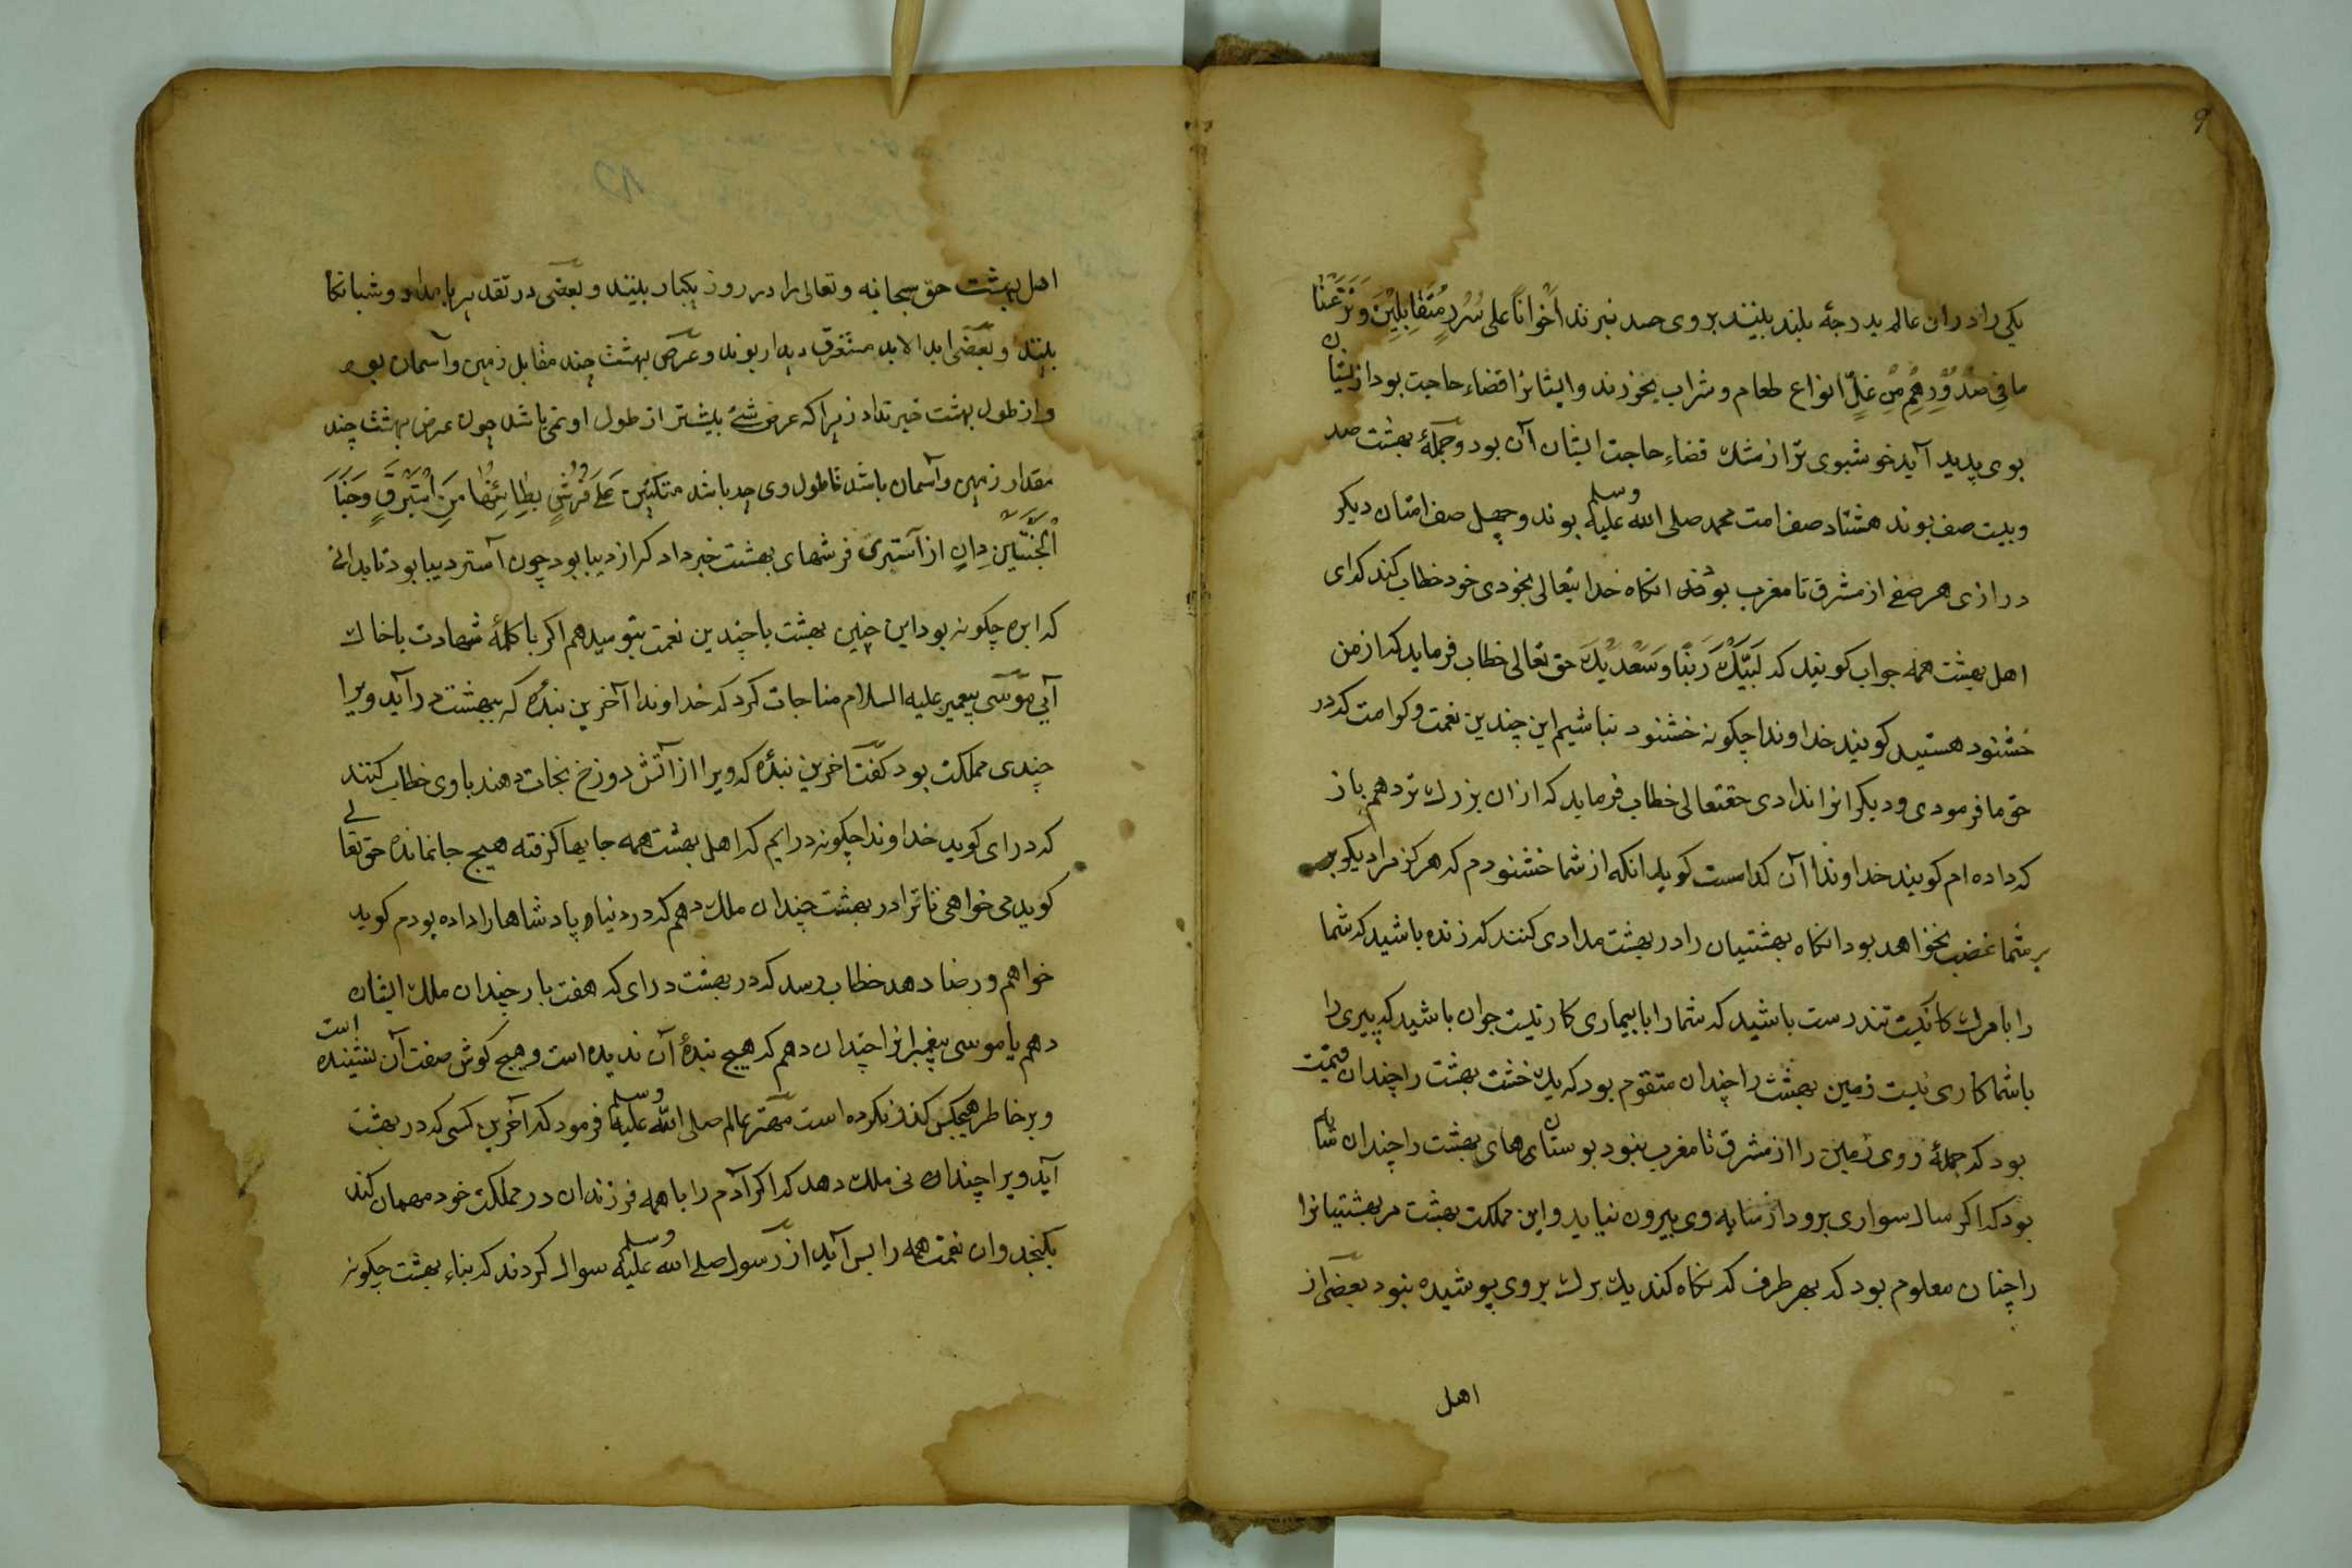 ۹
یکی را دران عالم بدرجهٔ بلند بینند بروی حسد نبرند اِخْوَانًا عَلی سُرُرٍ مُتَقَابِلِیْنَ وَنَزَعْنَا
مَا فِی صُدُوْرِهِمْ مِنْ غِلٍّ انواع طعام و شراب بخورند و ایشانرا قضاء حاجت بود از ایشان
بوی پدید آید خوشبوی تر از مشک قضاء حاجت ایشان آن بود و جملهٔ بهشت صد
و بیست صف بوند هشتاد صف امت محمد صلی الله علیه وسلم بوند و چهل صف امتان دیکر
درازی هر صفی از مشرق تا مغرب بود انکاه خدایتعالی بخودی خود خطاب کند که ای
اهل بهشت همه جواب کویند که لَبَّیْکَ رَبَّنَا وَسَعْدَیْکَ حق تعالی خطاب فرماید که از من
خشنود هستید کویند خداوندا چکونه خشنود نباشیم این چندین نعمت و کرامت که در
حق ما فرمودی و دیکرانرا ندادی حقتعالی خطاب فرماید که ازان بزرک تر دهم باز
که داده ام کویند خداوندا آن کدامست کوید انکه از شما خشنودم که هرکز مرا دیکر بر
بر شما غضب نخواهد بود انکاه بهشتیان را در بهشت مدادی کنند که زنده باشید که شما
را با مرک کار نیست تندرست باشید که شما را با بیماری کار نیست جوان باشید که پیری را
با شما کاری نیست زمین بهشت را چندان متقوم بود که یک خشت بهشت را چندان قیمت
بود که جملهٔ روی زمین را از مشرق تا مغرب نبود بوستان های بهشت را چندان سایه
بود که اکر سالها سواری برود از سایه وی بیرون نیاید و این مملکت بهشت مر بهشتیانرا
را چنان معلوم بود که بهر طرف که نکاه کند یک برک بروی پوشیده نبود بعضی از
اهل
اهل بهشت حق سبحانه و تعالی را در روز یکبار بینند و بعضی در تقدیر بامداد و شبانکا
بینند و بعضی ابد الابد مستغرق دیدار بوند و عرض بهشت چند مقابل زمین و آسمان بود
و از طول بهشت خبر نداد زیرا که عرض شئ بیشتر از طول او نمی باشد چون عرض بهشت چند
مقدار زمین و آسمان باشد تا طول وی چه باشد متکئین عَلَی فُرُشٍ بَطَائِنُهَا مِنْ اِسْتَبْرَقٍ وَجَنَا
الْجَنَّتَیْنِ دَانٍ از آستری فرشهای بهشت خبر داد که از دیبا بود چون آستر دیبا بود تا بدانی
که ابره چکونه بود این چنین بهشت با چندین نعمت بتو میدهم اکر با کلمهٔ شهادت با خاک
آیی موسی پیغمبر علیه السلام مناجات کرد که خداوندا آخرین بندهٔ که ببهشت در آید ویرا
چندی مملکت بود کفت آخرین بندهٔ که ویرا از آتش دوزخ نجات دهند با وی خطاب کنند
که در ای کوید خداوندا چکونه در ایم که اهل بهشت همه جایها کرفته هیچ جا نمانده حق تعالی
کوید می خواهی تا ترا در بهشت چندان ملک دهم که در دنیا و پادشاها را داده بودم کوید
خواهم و رضا دهد خطاب رسد که در بهشت درای که هفت بار چندان ملک ایشان
دهم یا موسی پیغمبرانرا چندان دهم که هیچ بندهٔ آن ندیده است و هیچ کوش صفت آن نشنیده است
و بر خاطر هیچکس کذر نکرده است مهتر عالم صلی الله علیه وسلم فرمود که آخرین کسی که در بهشت
آید ویرا چندان نی ملک دهد که اکر آدم را با همه فرزندان در مملکت خود مهمان کند
بکنجد وان نعمت همه را بس آید از رسول صلی الله علیه وسلم سوال کردند که بناء بهشت چکونه